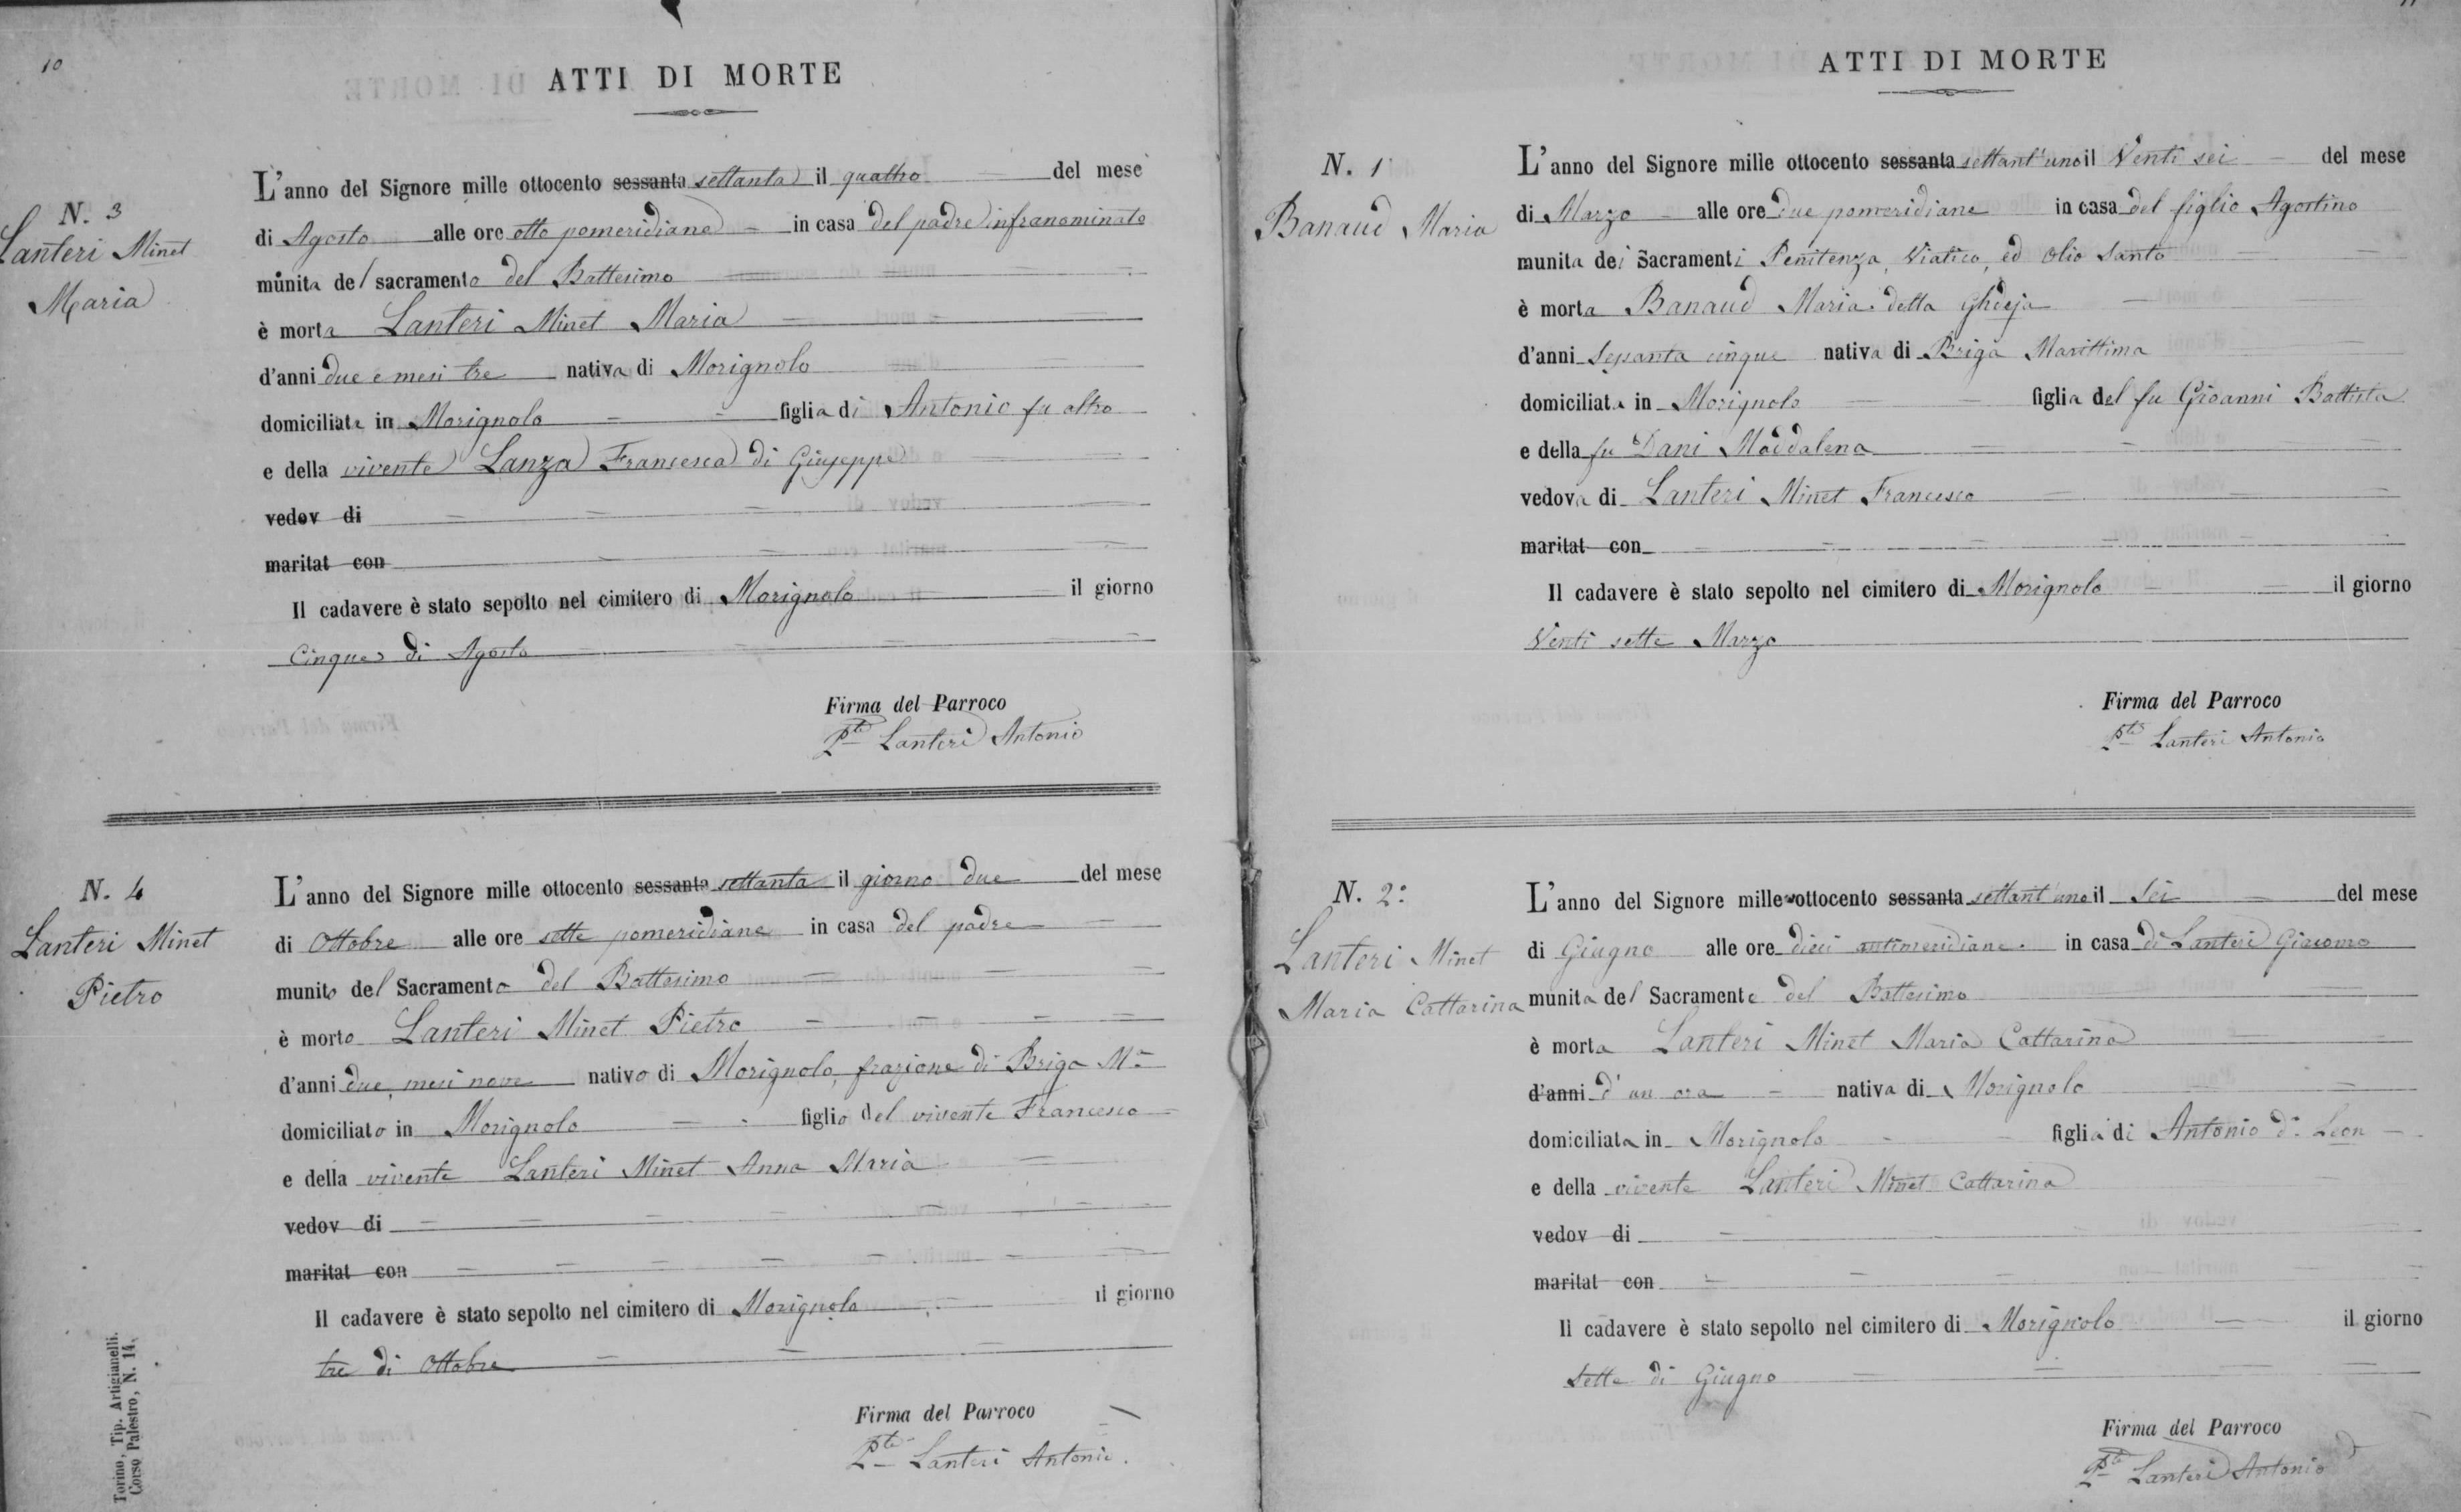 10
ATTI DI MORTE
N. 3
Lanteri Minet
Maria
L'anno del Signore mille ottocento sessanta settanta il quattro del mese
di Agosto alle ore otto pomeridiane in casa del padre infranominato
munita del sacramento del Battesimo
è morta Lanteri Minet Maria
d'anni due e mesi tre nativa di Morignolo
domiciliata in Morignolo figlia di Antonio fu altro
e della vivente Lanza Francesca di Giuseppe
vedov di
maritat con
Il cadavere è stato sepolto nel cimitero di Morignolo il giorno
Cinque di Agosto
Firma del Parroco
Pte Lanteri Antonio
N. 4
Lanteri Minet
Pietro
L'anno del Signore mille ottocento sessanta settanta il giorno due del mese
di Ottobre alle ore sette pomeridiane in casa del padre
munito del Sacramento del Battesimo
è morto Lanteri Minet Pietro
d'anni due, mesi nove nativo di Morignolo, frazione di Briga Ma
domiciliato in Morignolo figlio del vivente Francesco
e della vivente Lanteri Minet Anna Maria
vedov di
maritat con
Il cadavere è stato sepolto nel cimitero di Morignolo il giorno
tre di Ottobre
Firma del Parroco
Pte Lanteri Antonio.
Torino, Tip. Artigianelli.
Corso Palestro, N. 14.
11
ATTI DI MORTE
N. 1
Banaud Maria
L'anno del Signore mille ottocento sessanta settant'uno il Venti sei del mese
di Marzo alle ore due pomeridiane in casa del figlio Agostino
munita dei Sacramenti Penitenza, Viatico, ed Olio Santo
è morta Banaud Maria detta Ghieja
d'anni Sessanta cinque nativa di Briga Marittima
domiciliata in Morignolo figlia del fu Gioanni Battista
e della fu Dani Maddalena
vedova di Lanteri Minet Francesco
maritat con
Il cadavere è stato sepolto nel cimitero di Morignolo il giorno
Venti sette Marzo
Firma del Parroco
Pte Lanteri Antonio
N. 2:
Lanteri Minet
Maria Cattarina
L'anno del Signore mille ottocento sessanta settant'uno il Sei del mese
di Giugno alle ore dieci antimeridiane. in casa di Lanteri Giacomo
munita del Sacramento del Battesimo
è morta Lanteri Minet Maria Cattarina
d'anni d'un ora nativa di Morignolo
domiciliata in Morignolo figlia di Antonio di Leon
e della vivente Lanteri Minet Cattarina
vedov di
maritat con
Il cadavere è stato sepolto nel cimitero di Morignolo il giorno
Sette di Giugno
Firma del Parroco
Pte Lanteri Antonio